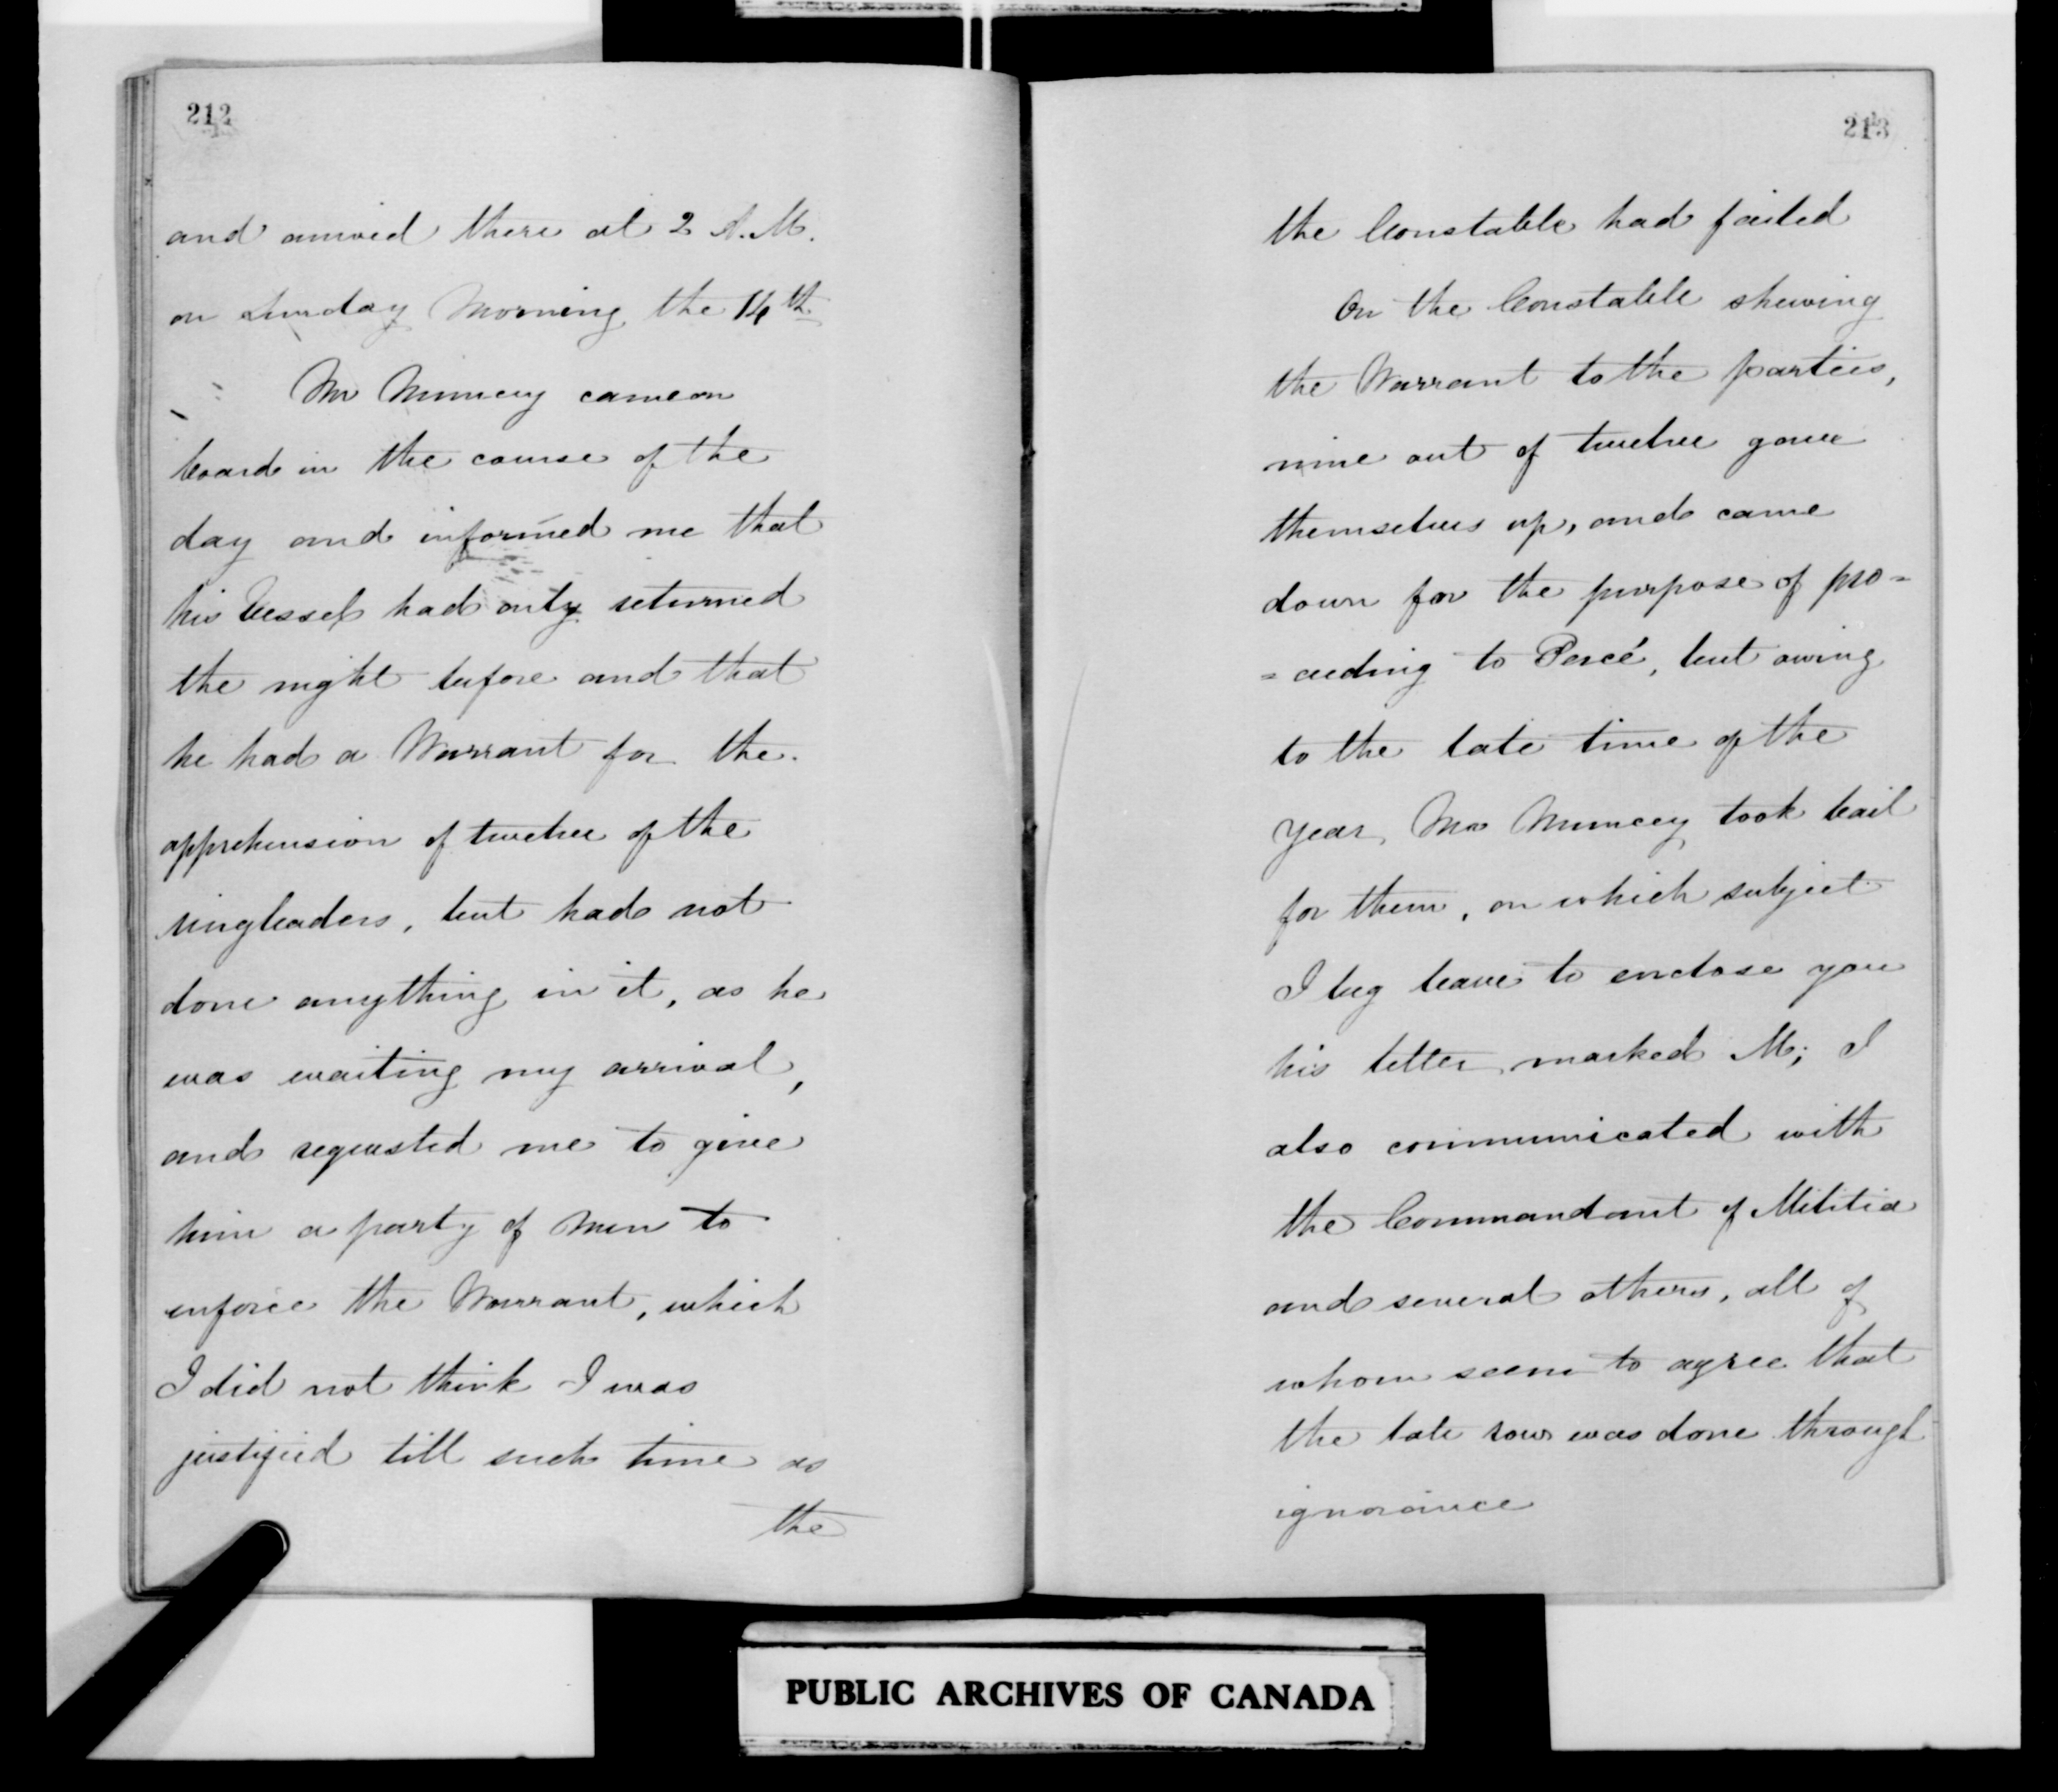 212
and arrived there at 2 A.M.
on Sunday Morning the 14th
Mr Muncey came on
board in the course of the
day and informed me that
his Vessel had only returned
the night before and that
he had a Warrant for the
apprehension of twelve of the
ringleaders, but had not
done anything in it, as he
was waiting my arrival,
and requested me to give
him a party of Men to
enforce the Warrant, which
I did not think I was
justified till such time as
the
213
the Constable had failed
On the Constable shewing
the Warrant to the parties,
nine out of twelve gave
themselves up, and came
down for the purpose of pro=
=ceeding to Percé, but owing
to the late time of the
Year, Mr Muncey took bail
for them, on which subject
I beg leave to enclose you
his letter marked M; I
also communicated with
the Commandant of Militia
and several others, all of
whom seem to agree that
the late row was done through
ignorance
PUBLIC ARCHIVES OF CANADA